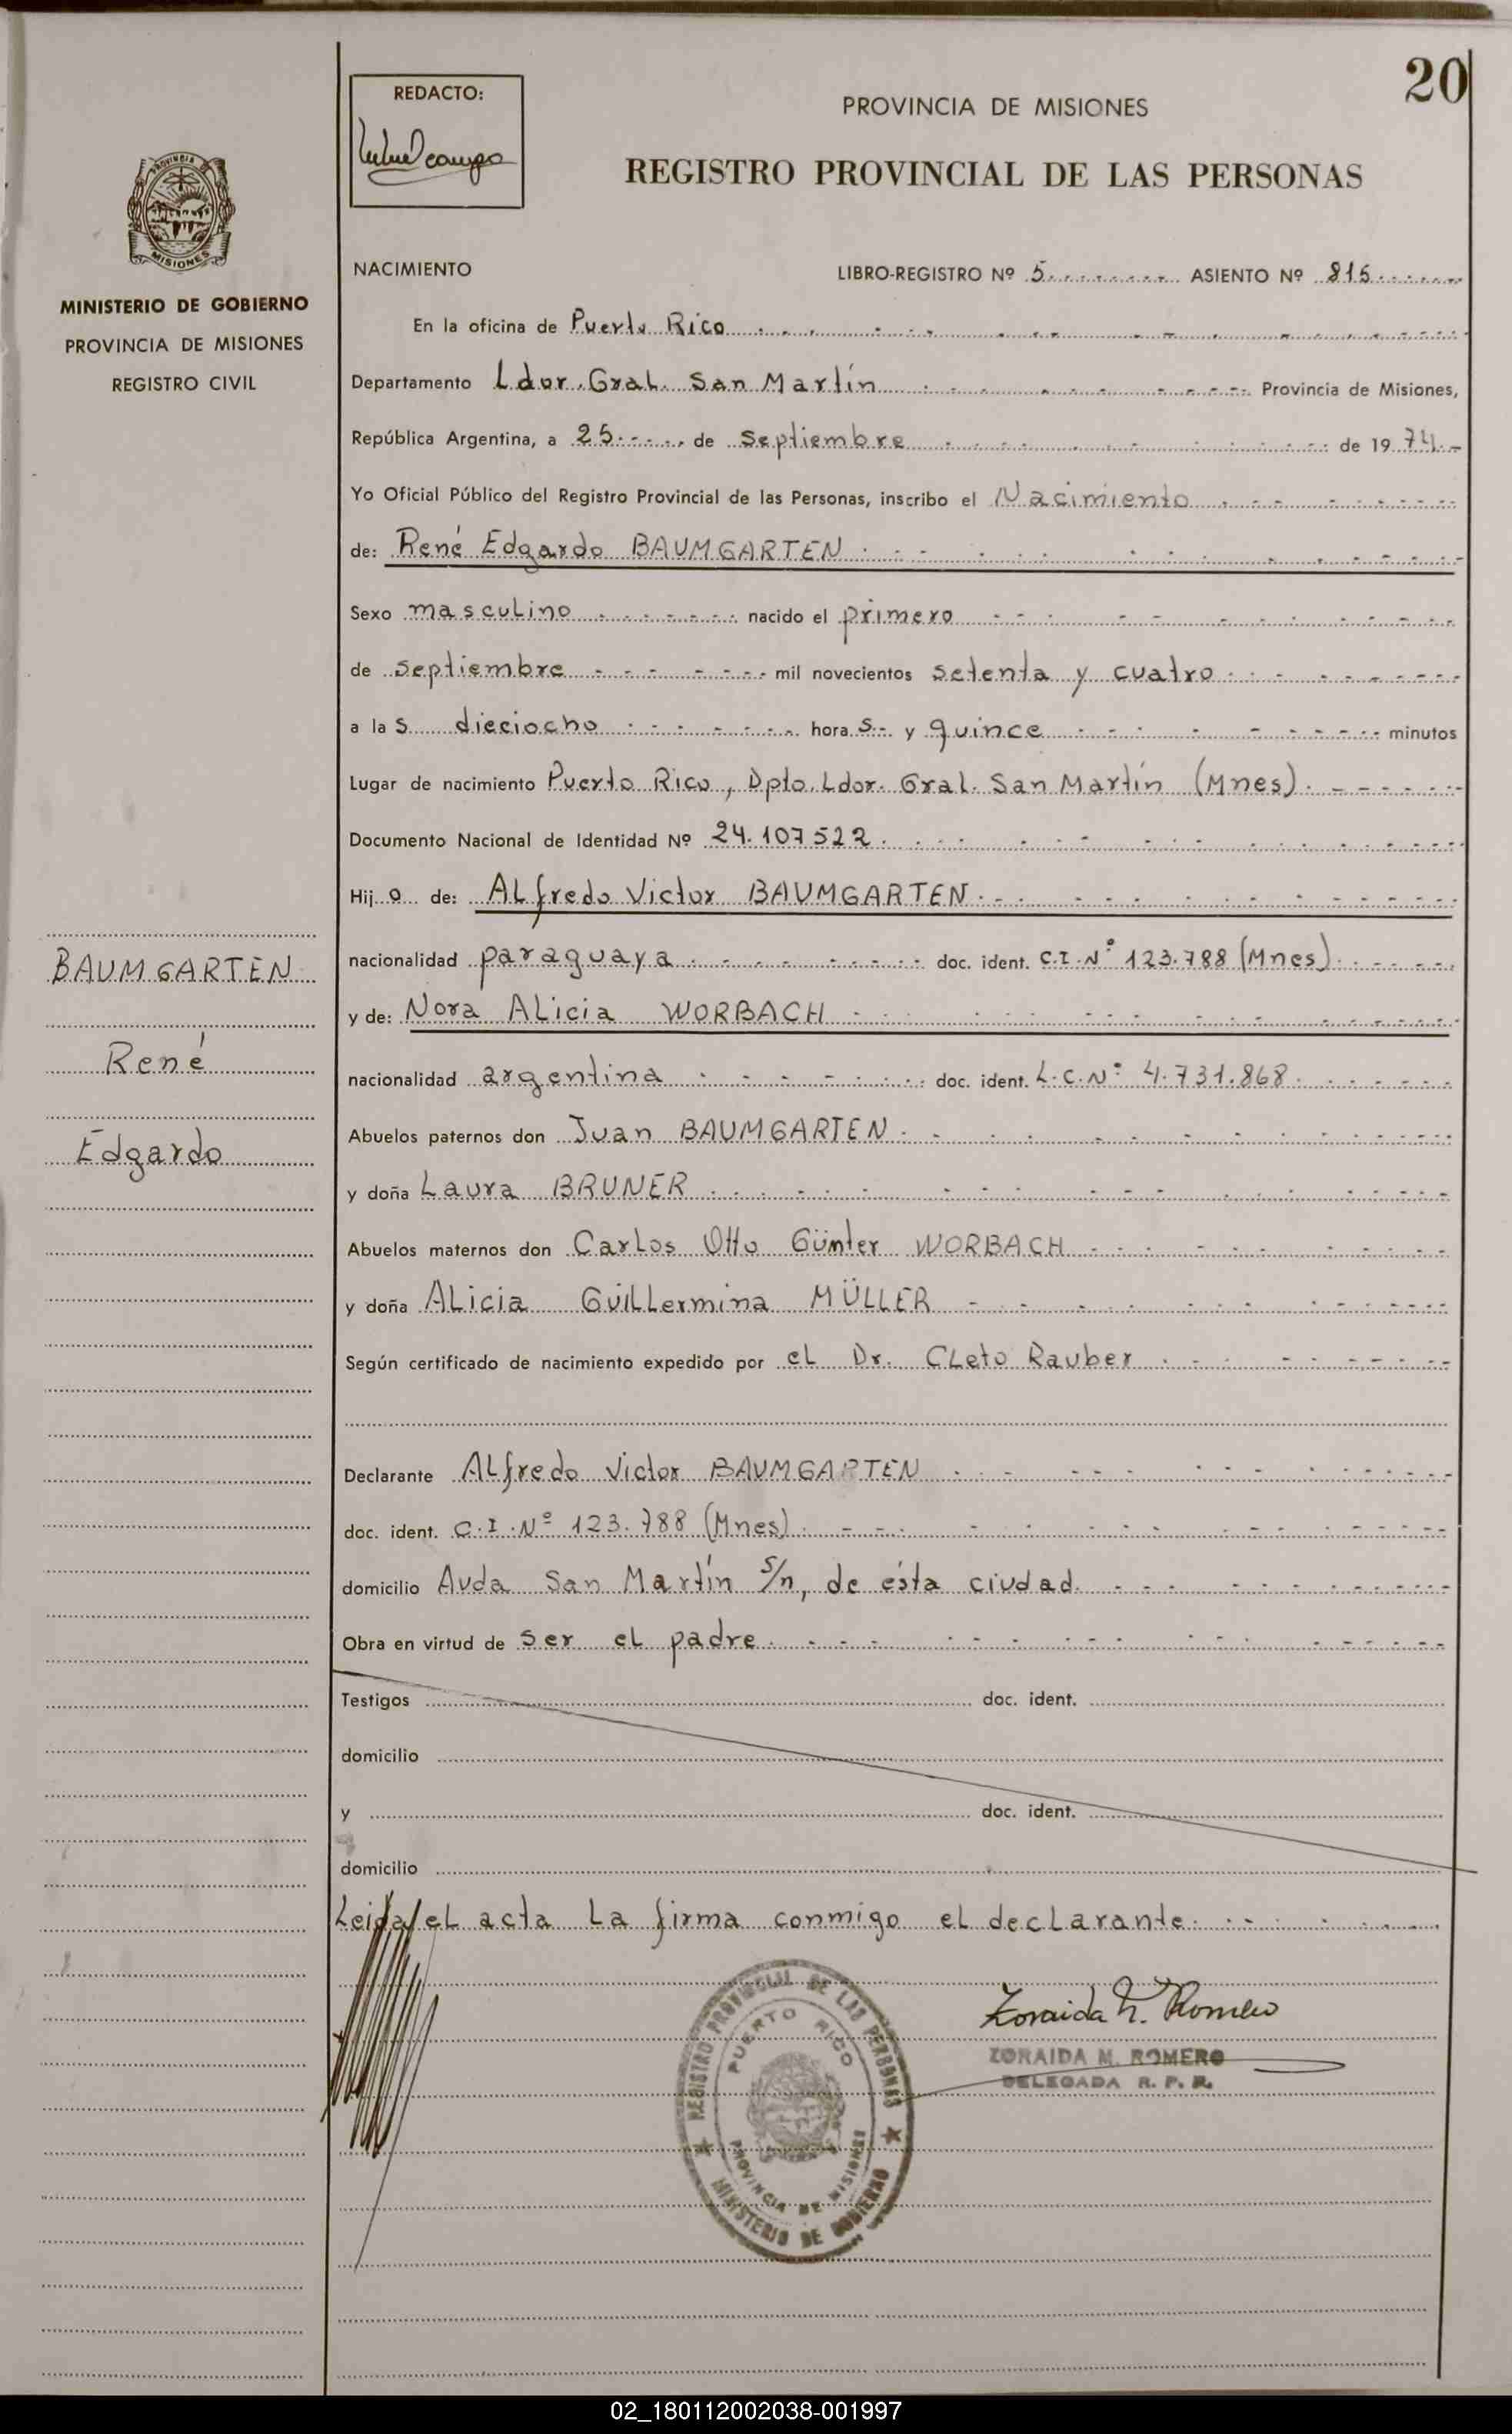 20
REDACTO:
PROVINCIA DE MISIONES
REGISTRO PROVINCIAL DE LAS PERSONAS
PROVINCIA
MISIONES
MINISTERIO DE GOBIERNO
PROVINCIA DE MISIONES
REGISTRO CIVIL
NACIMIENTO LIBRO-REGISTRO Nº 5 ASIENTO Nº 815
En la oficina de Puerto Rico
Departamento Ldor. Gral. San Martín Provincia de Misiones,
República Argentina, a 25 de Septiembre de 1974.-
Yo Oficial Público del Registro Provincial de las Personas, inscribo el Nacimiento
de: René Edgardo BAUMGARTEN
Sexo masculino nacido el primero
de septiembre mil novecientos setenta y cuatro
a la s dieciocho hora s y quince minutos
Lugar de nacimiento Puerto Rico, Dpto. Ldor. Gral. San Martín (Mnes).
Documento Nacional de Identidad Nº 24.107522.
Hij o de: Alfredo Victor BAUMGARTEN
nacionalidad paraguaya doc. ident. C.I.Nº 123.788 (Mnes)
y de: Nora Alicia WORBACH
nacionalidad argentina doc. ident. L.C.Nº 4.731.868.
Abuelos paternos don Juan BAUMGARTEN
y doña Laura BRUNER
Abuelos maternos don Carlos Otto Günter WORBACH
y doña Alicia Guillermina MÜLLER
Según certificado de nacimiento expedido por el Dr. Cleto Rauber
Declarante Alfredo Victor BAUMGARTEN
doc. ident. C.I.Nº 123.788 (Mnes)
domicilio Avda San Martín s/n, de ésta ciudad.
Obra en virtud de ser el padre.
Testigos doc. ident.
domicilio
y doc. ident.
domicilio
Leida el acta la firma conmigo el declarante.
BAUMGARTEN
René
Edgardo
REGISTRO PROVINCIAL DE LAS PERSONAS
PUERTO RICO
PROVINCIA DE MISIONES
MINISTERIO DE GOBIERNO
Zoraida M. Romero
ZORAIDA M. ROMERO
DELEGADA R. P. P.
02_180112002038-001997